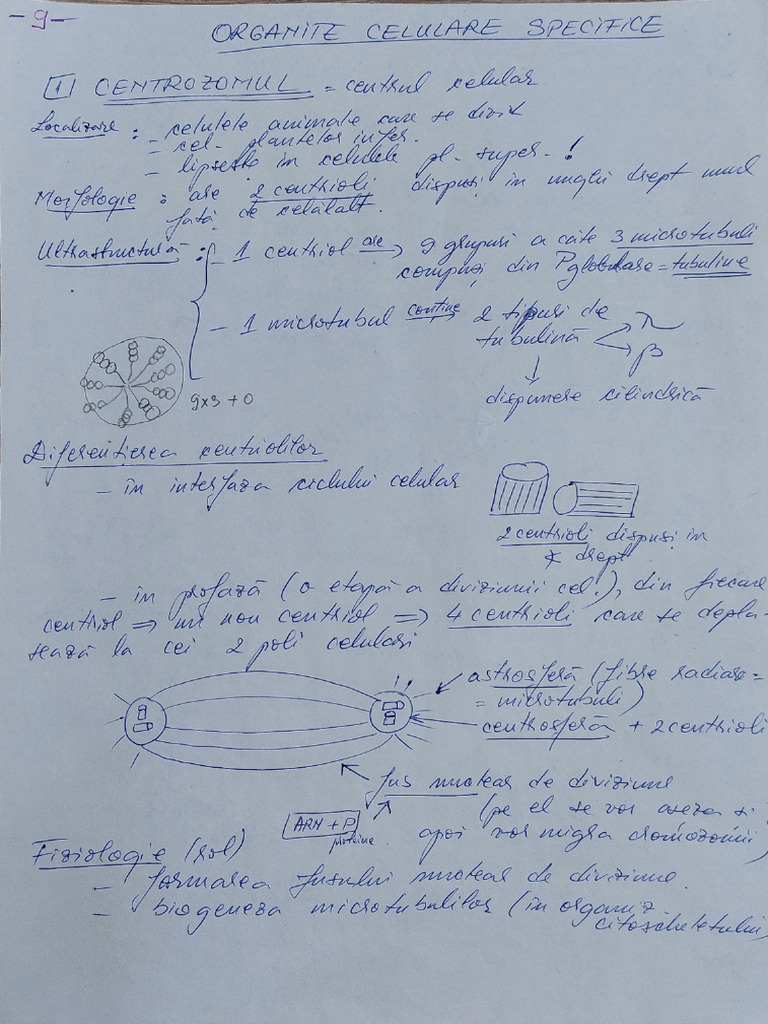 - 9 -
ORGANITE CELULARE SPECIFICE
1 CENTROZOMUL = centrul celular
Localizare : - celulele animale care se divik
- cel. plantelor infer.
- lipsește în celulele pl. super. !
Morfologie : are 2 centrioli dispuși în unghi drept unul
față de celălalt.
Ultrastructură : - 1 centriol are → 9 grupuri a câte 3 microtubuli
compuși din P globulare = tubuline
- 1 microtubul conține → 2 tipuri de
tubulină
β
dispunere cilindrică
9x3 + 0
Diferențierea centriolilor
- în interfaza ciclului celular
2 centrioli dispuși în
∢ drept
- în profază (o etapă a diviziunii cel.), din fiecare
centriol ⇒ un nou centriol ⇒ 4 centrioli care se depla-
sează la cei 2 poli celulari
astrosferă (fibre radiare =
= microtubuli)
centrosferă + 2 centrioli
fus nuclear de diviziune
(pe el se vor așeza și
ARN + P
proteine
apoi vor migra cromozomii)
Fiziologie (rol)
- formarea fusului nuclear de diviziune.
- biogeneza microtubulilor (în organiz.
citoscheletului)